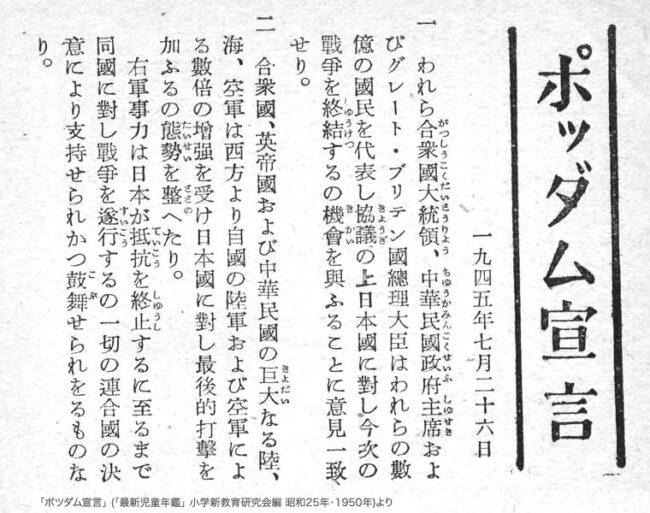 ポッダム宣言
一九四五年七月二十六日
一 われら合衆國大統領、中華民國政府主席およ
びグレート・ブリテン國總理大臣はわれらの數
億の國民を代表し協議の上日本國に對し今次の
戰爭を終結するの機會を與ふることに意見一致
せり。
二 合衆國、英帝國および中華民國の巨大なる陸、
海、空軍は西方より自國の陸軍および空軍によ
る數倍の增强を受け日本國に對し最後的打擊を
加ふるの態勢を整へたり。
右軍事力は日本が抵抗を終止するに至るまで
同國に對し戰爭を遂行するの一切の連合國の決
意により支持せられかつ鼓舞せられをるものな
り。
「ポツダム宣言」(「最新児童年鑑」小学新教育研究会編 昭和25年・1950年)より